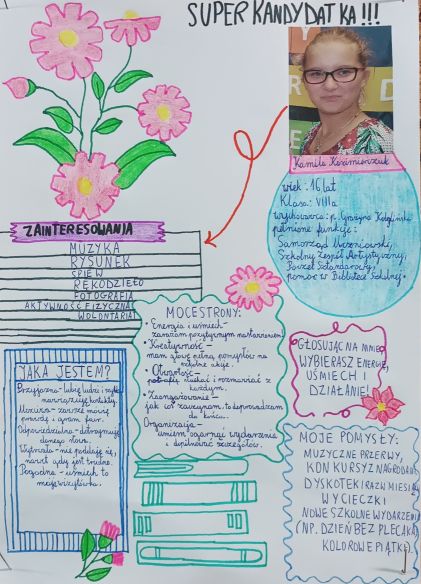 SUPER KANDYDATKA!!!
Kamila Kazimierczuk
wiek: 16 lat
Klasa: VIIIa
wychowawca: p. Grażyna
pełnione funkcje:
Samorząd Uczniowski,
Szkolny Zespół Artystyczny,
Poczet Sztandarowy,
pomoc w Bibliotece Szkolnej.
ZAINTERESOWANIA
MUZYKA
RYSUNEK
ŚPIEW
RĘKODZIEŁO
FOTOGRAFIA
AKTYWNOŚĆ FIZYCZNA
WOLONTARIAT
MOCE STRONY:
- Energia i uśmiech -
zarażam pozytywnym nastawieniem.
- Kreatywność -
mam głowę pełną pomysłów na
szkolne akcje.
- Otwartość -
potrafię słuchać i rozmawiać z
każdym.
- Zaangażowanie -
jak coś zaczynam, to doprowadzam
do końca.
- Organizacja -
umiem ogarnąć wydarzenia
i dopilnować szczegółów.
GŁOSUJĄC NA MNIE
WYBIERASZ ENERGIĘ,
UŚMIECH I
DZIAŁANIE!
JAKA JESTEM?
Przyjazna - lubię ludzi i szybko
nawiązuję kontakty.
Uczciwa - zawsze mówię
prawdę i gram fair.
Odpowiedzialna - dotrzymuję
danego słowa.
Wytrwała - nie poddaję się,
nawet gdy jest trudno.
Pogodna - uśmiech to
moja wizytówka.
MOJE POMYSŁY:
MUZYCZNE PRZERWY,
KONKURSY Z NAGRODAMI
DYSKOTEKI RAZ W MIESIĄCU
WYCIECZKI
NOWE SZKOLNE WYDARZENIA
(NP. DZIEŃ BEZ PLECAKA,
KOLOROWE PIĄTKI)